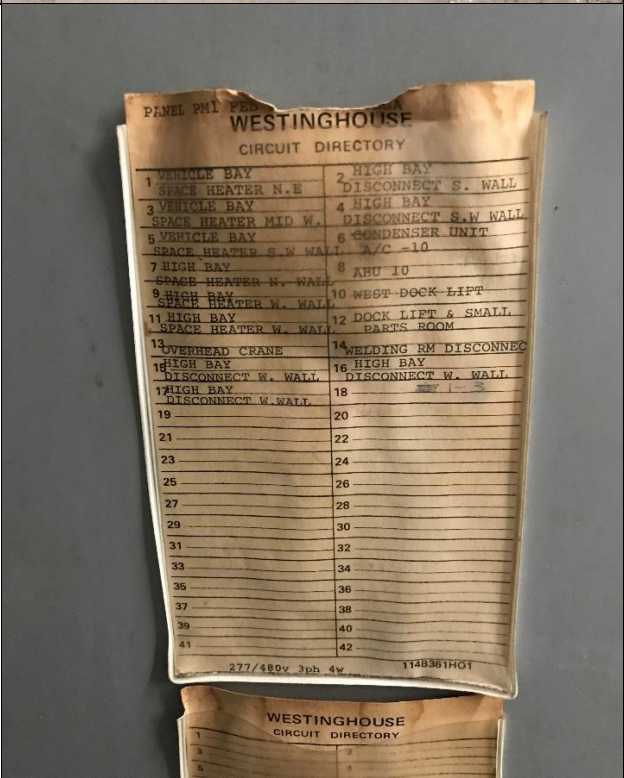 PANEL PM1 FED
WESTINGHOUSE
CIRCUIT DIRECTORY
1 VEHICLE BAY
SPACE HEATER N.E
2 HIGH BAY
DISCONNECT S. WALL
3 VEHICLE BAY
SPACE HEATER MID W.
4 HIGH BAY
DISCONNECT S.W WALL
5 VEHICLE BAY
SPACE HEATER S.W WALL
6 CONDENSER UNIT
A/C -10
7 HIGH BAY
SPACE HEATER N. WALL
8 AHU 10
9 HIGH BAY
SPACE HEATER W. WALL
10 WEST DOCK LIFT
11 HIGH BAY
SPACE HEATER W. WALL
12 DOCK LIFT & SMALL
PARTS ROOM
13 OVERHEAD CRANE
14 WELDING RM DISCONNEC
15 HIGH BAY
DISCONNECT W. WALL
16 HIGH BAY
DISCONNECT W. WALL
17 HIGH BAY
DISCONNECT W.WALL
18 1-3
19 20
21 22
23 24
25 26
27 28
29 30
31 32
33 34
35 36
37 38
39 40
41 42
277/480v 3ph 4w 114B361H01
WESTINGHOUSE
CIRCUIT DIRECTORY
1
3
5